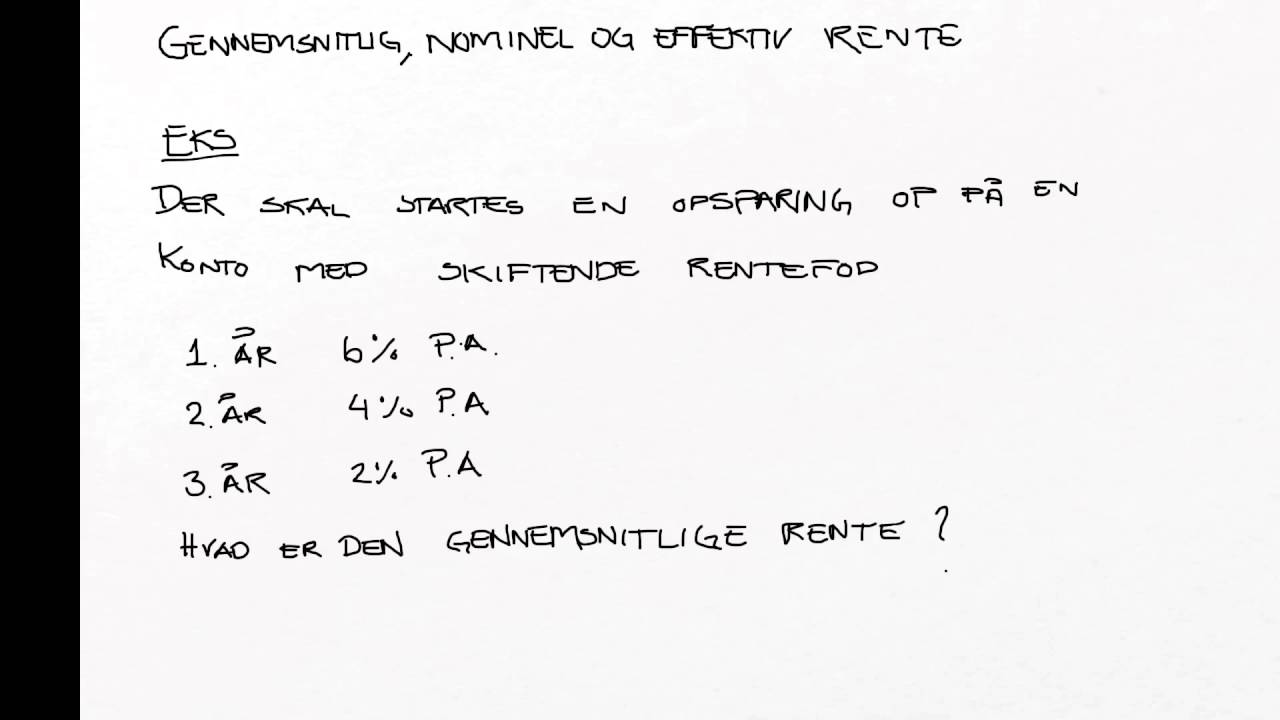 GENNEMSNITLIG, NOMINEL OG EFFEKTIV RENTE
EKS
DER SKAL STARTES EN OPSPARING OP PÅ EN
KONTO MED SKIFTENDE RENTEFOD
1. ÅR 6% P.A.
2. ÅR 4% P.A
3. ÅR 2% P.A
HVAD ER DEN GENNEMSNITLIGE RENTE?